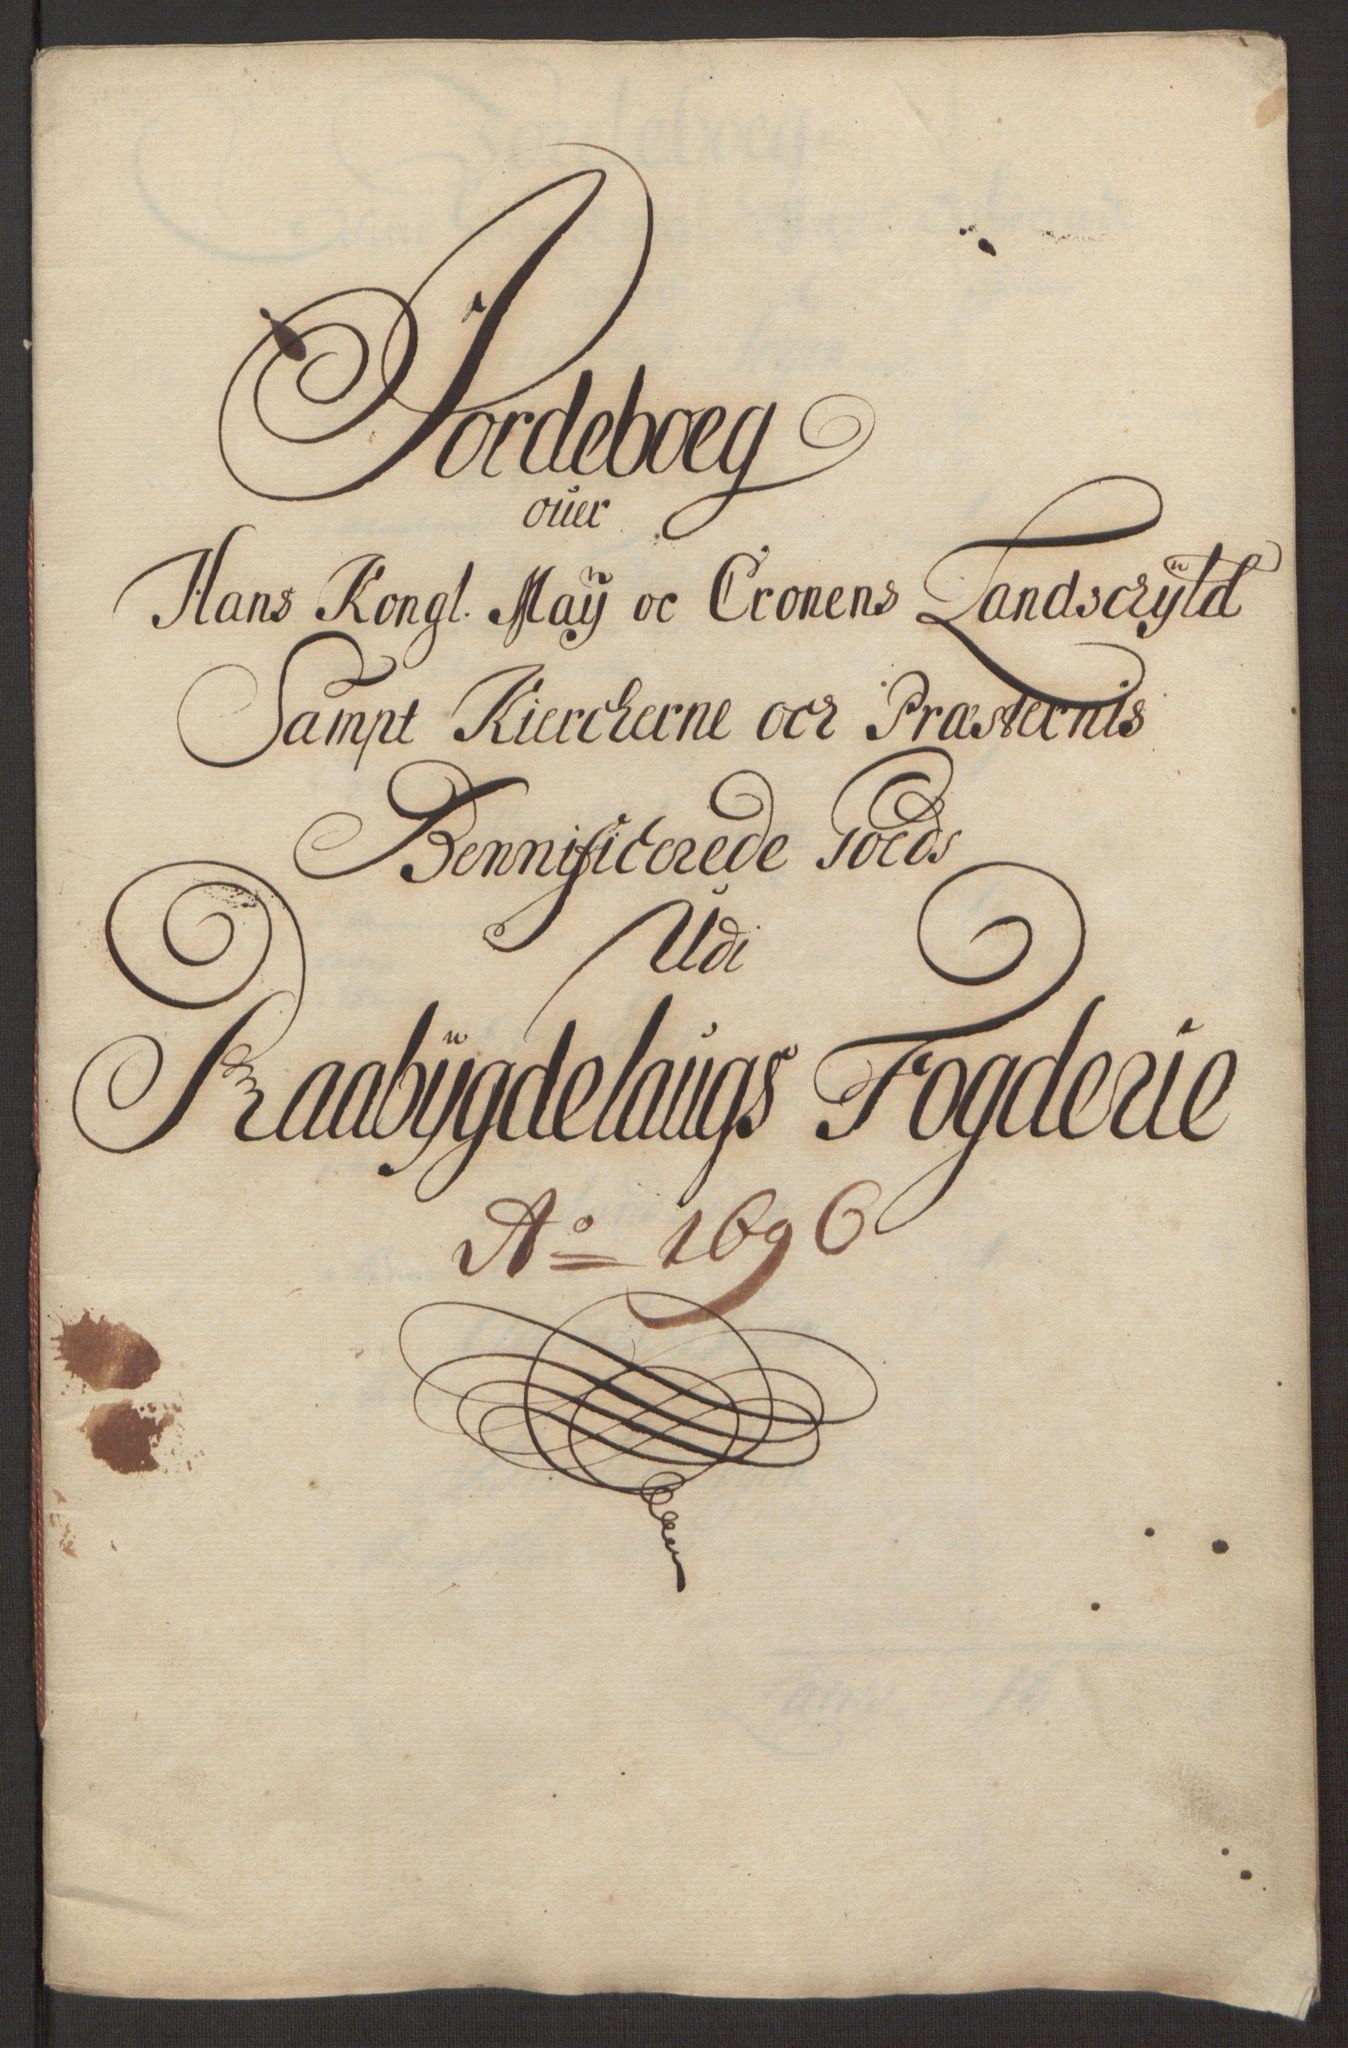 Jordeboeg
ouer
Hans Kongl. Maÿ oc Cronens Landschÿld
Sampt Kiercherne och Præsternis
Bennificerede Goeds
Udi
Raabÿgdelaugs Fogderie
Ao 1696